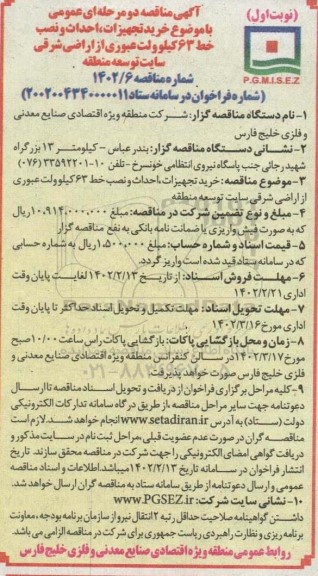 (نوبت اول)
آگهی مناقصه دو مرحله ای عمومی
با موضوع خرید تجهیزات، احداث و نصب
خط ۶۳ کیلوولت عبوری از اراضی شرقی
سایت توسعه منطقه
P.G.M.I.S.E.Z
شماره مناقصه ۱۴۰۲/۶
(شماره فراخوان در سامانه ستاد ۲۰۰۲۰۰۴۳۴۰۰۰۰۰۱۱)
۱- نام دستگاه مناقصه گزار: شرکت منطقه ویژه اقتصادی صنایع معدنی
و فلزی خلیج فارس
۲- نشانی دستگاه مناقصه گزار: بندرعباس - کیلومتر ۱۳ بزرگراه
شهید رجائی جنب پاسگاه نیروی انتظامی خونسرخ - تلفن ۱۰-۳۳۵۹۲۲۰۱ (۰۷۶)
۳- موضوع مناقصه: خرید تجهیزات، احداث و نصب خط ۶۳ کیلوولت عبوری
از اراضی شرقی سایت توسعه منطقه
۴- مبلغ و نوع تضمین شرکت در مناقصه: مبلغ ۱۰,۹۱۴,۰۰۰,۰۰۰ ریال
که به صورت فیش واریزی یا ضمانت نامه بانکی به نفع مناقصه گزار
۵- قیمت اسناد و شماره حساب: مبلغ ۱,۵۰۰,۰۰۰ ریال به شماره حسابی
که در سامانه ستاد قید شده است واریز گردد.
۶- مهلت فروش اسناد: از تاریخ ۱۴۰۲/۲/۱۳ لغایت پایان وقت
اداری ۱۴۰۲/۲/۲۱
۷- مهلت تحویل اسناد: مهلت تکمیل و تحویل اسناد حداکثر تا پایان وقت
اداری مورخ ۱۴۰۲/۳/۱۶
۸- زمان و محل بازگشایی پاکات: بازگشایی پاکات راس ساعت ۱۰/۰۰ صبح
مورخ ۱۴۰۲/۳/۱۷ در سالن کنفرانس منطقه ویژه اقتصادی صنایع معدنی و
فلزی خلیج فارس صورت خواهد پذیرفت
۹- کلیه مراحل برگزاری فراخوان از دریافت و تحویل اسناد مناقصه تا ارسال
دعوتنامه جهت سایر مراحل مناقصه، از طریق درگاه سامانه تدارکات الکترونیکی
دولت (ستاد) به آدرس www.setadiran.ir انجام خواهد شد. لازم است
مناقصه گران در صورت عدم عضویت قبلی، مراحل ثبت نام در سایت مذکور و
دریافت گواهی امضای الکترونیکی را جهت شرکت در مناقصه محقق سازند. تاریخ
انتشار فراخوان در سامانه تاریخ ۱۴۰۲/۲/۱۳ میباشد اطلاعات و اسناد مناقصه
عمومی و ارسال دعوتنامه از طریق سامانه ستاد به مناقصه گران ارسال خواهد شد.
۱۰- نشانی سایت شرکت: www.PGSEZ.ir
داشتن گواهینامه صلاحیت حداقل رتبه ۲ انتقال نیرو از سازمان برنامه بودجه، معاونت
برنامه ریزی و نظارت راهبردی ریاست جمهوری برای شرکت در مناقصه الزامی می باشد.
روابط عمومی منطقه ویژه اقتصادی صنایع معدنی و فلزی خلیج فارس